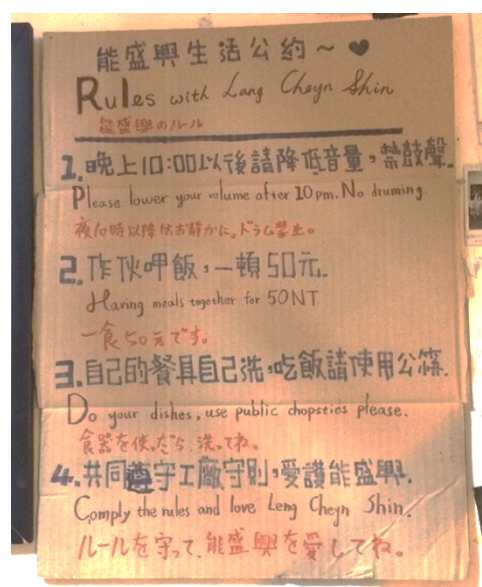 能盛興生活公約～♥
Rules with Lang Cheyn Shin
能盛興のルール
1.晚上10:00以後請降低音量，禁鼓聲.
Please lower your volume after 10pm. No druming
夜10時以降はお静かに。ドラム禁止。
2.作伙呷飯，一頓50元.
Having meals together for 50NT
一食50元です。
3.自己的餐具自己洗，吃飯請使用公筷.
Do your dishes, use public chopstics please.
食器を使ったら、洗ってね。
4.共同遵守工廠守則，愛護能盛興.
Comply the rules and love Leng Cheyn Shin.
ルールを守って、能盛興を愛してね。